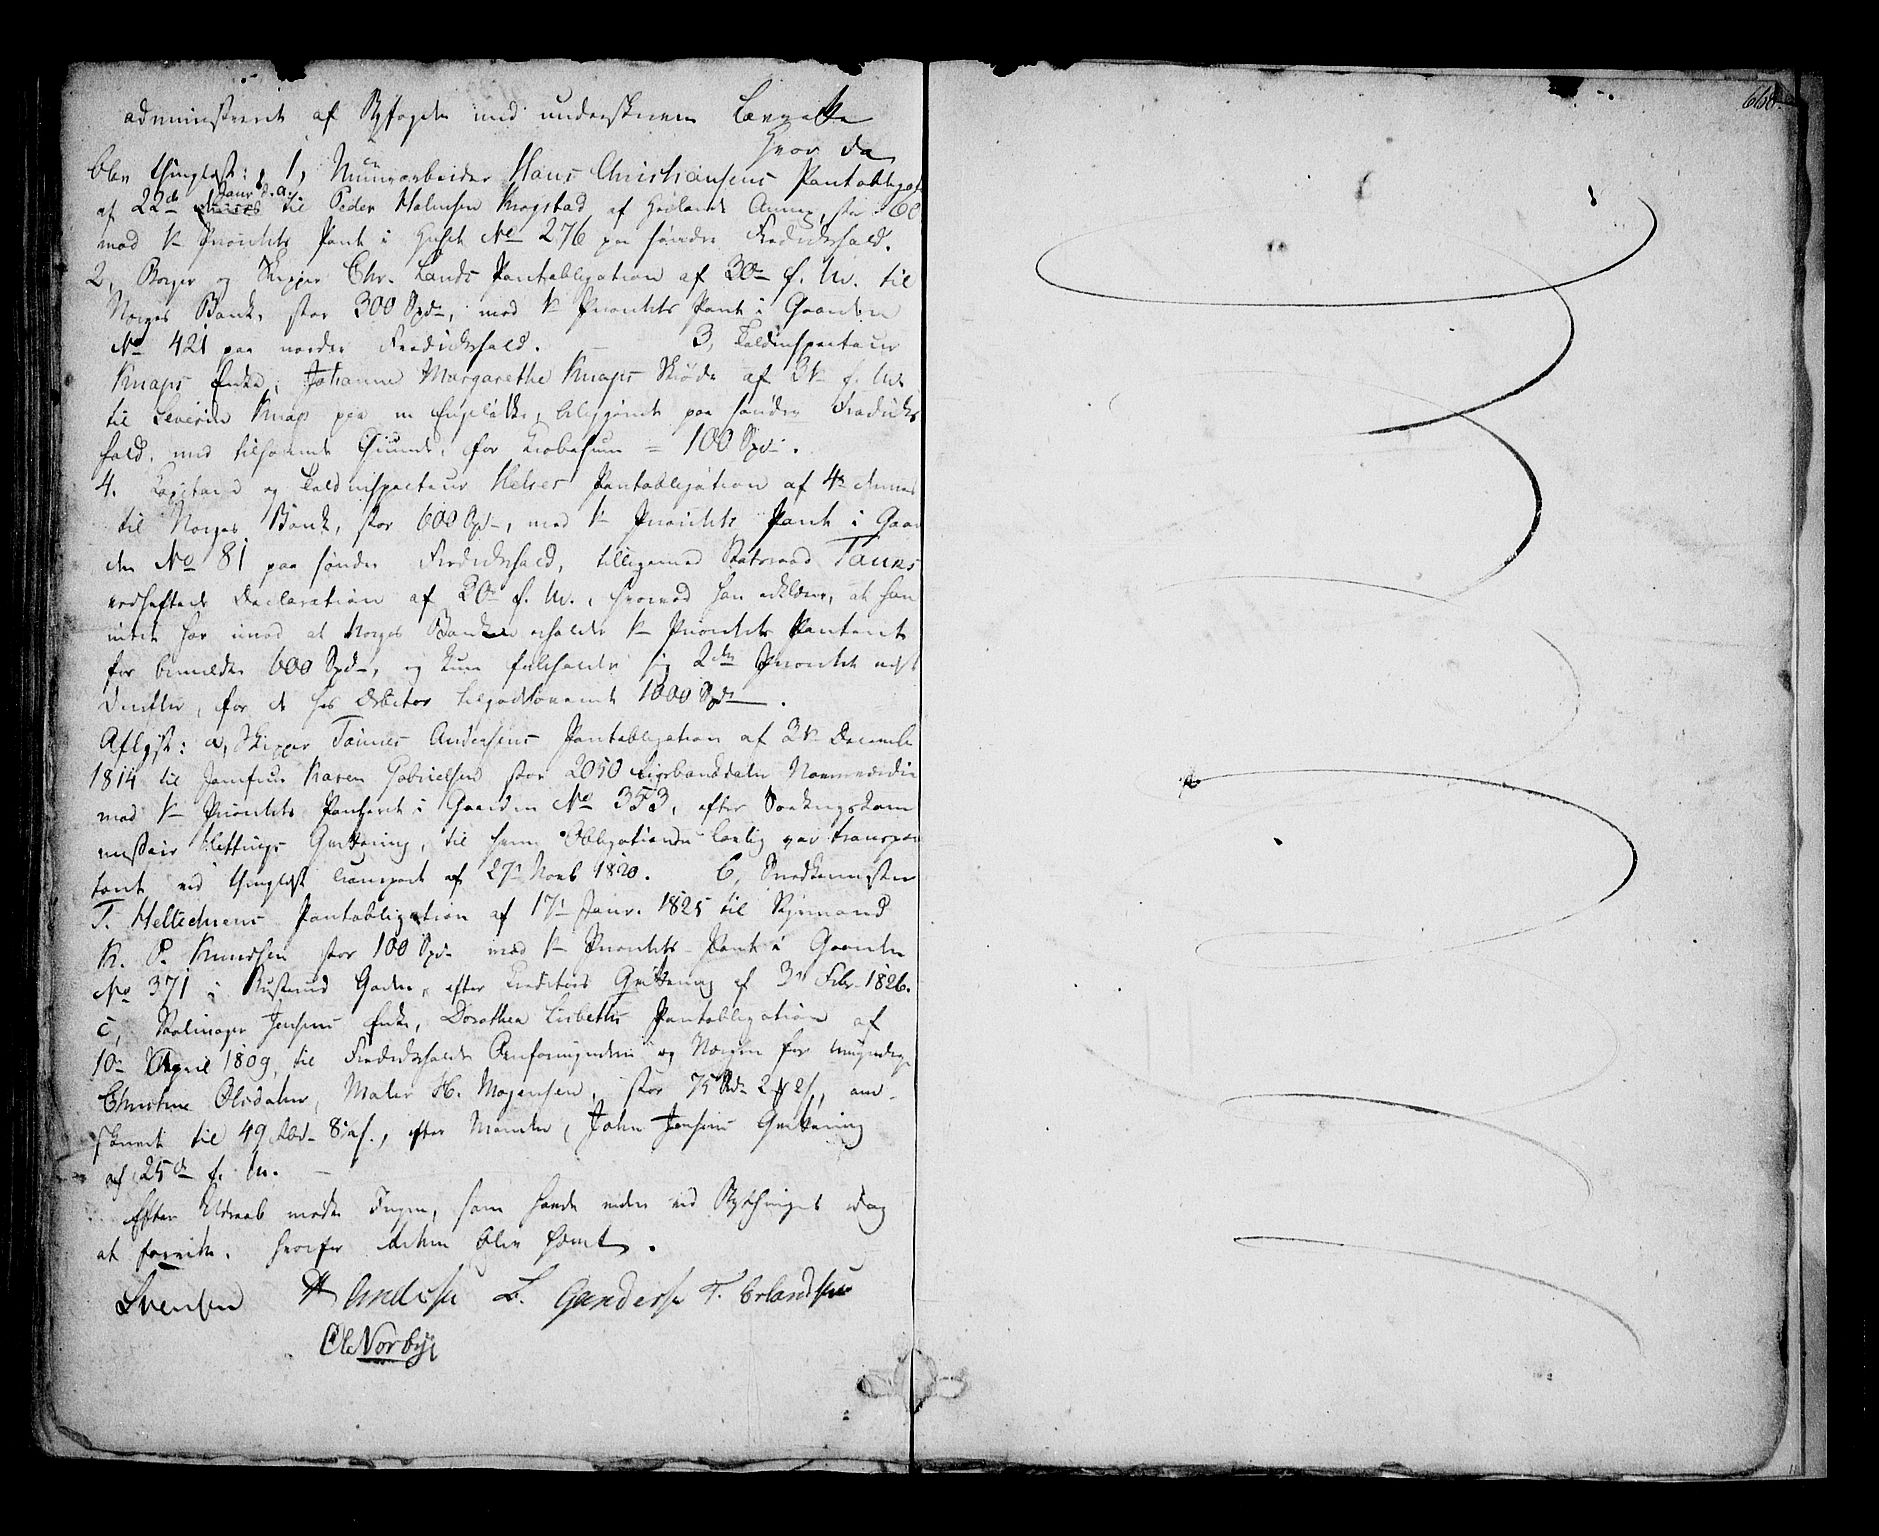 668.
administreret af Byfogden med underskrevne Laugrette
hvor da
blev thinglæst: 1, Muurarbeider Hans Christiansens Pantobligat
af 22de Janr. d. a. til Peder Halvorsen Krogstad af Annex, stor 60
mod 1ste Prioritets Pant i Huset No 276 paa søndre Fredrikshald.
2, Borger og Skipper Chr. Lands Pantobligation af 30te f. M. til
Norges Bank, stor 300 Spd, mod 1ste Prioritets Pant i Gaarden
No 421 paa nordre Fredrikshald. 3, Toldinspecteur
Knaps Enke, Johanne Margarethe Knaps Skiøde af 31te f. M.
til Severin Knap paa en Engeløkke, beliggende paa søndre Fredriks
hald, med tilhørende Grund, for Kiøbesum = 100 Spd.
4. Capitain og Toldinspecteur Pantobligation af 4de
til Norges Bank, stor 600 Spd, mod 1ste Prioritets Pant i Gaar
den No 81 paa søndre Fredrikshald, tilligemed Statsraad Tanks
vedheftede Declaration af 20de f. M., hvorved han erklærer, at han
intet har imod at Norges Bank erholder 1ste Prioritets Panteret
for bemeldte 600 Spd, og kun forbeholder sig 2den Prioritet næst
derefter, for de hos Debitor tilgodehavende 1000 Spd.
Aflyst: a, Skipper Tønnes Andersens Pantobligation af 31te December
1814 til Jomfrue Karen Gabrielsen stor 2050 Rigsbankdaler Navneværdie
mod 1ste Prioritets Panteret i Gaarden No 353, efter Sorenskriver
Qvittering, til hvem Obligationen lovlig var transpor
teret ved thinglæst Transport af 27de Novb 1820. b, Snedkermester
T. Pantobligation af 17de Janr. 1825 til Styrmand
K. P. Knudsen stor 100 Spd mod 1ste Prioritets Pant i Gaarden
No 371 i Gaden, efter Creditors Qvittering af 3de Febr. 1826.
c, Jensens Enke, Dorothea Lisbeths Pantobligation af
10de April 1809, til Fredrikshalds Overformynderi og Værgen for umyndige
Christine Olsdatter, Maler H. Mogensen, stor 75 Rd 2 # 2 s, om-
skrevet til 49 Rbd 8 s, efter Myndl, John Jensens Qvittering
af 25de f. M.
Efter Udraab mødte Ingen, som havde videre ved Bythinget idag
at forrette, hvorfor Retten blev hævet.
Svensen H Andersen L. Gundersen T. Erlandsen
Ol. Norbye